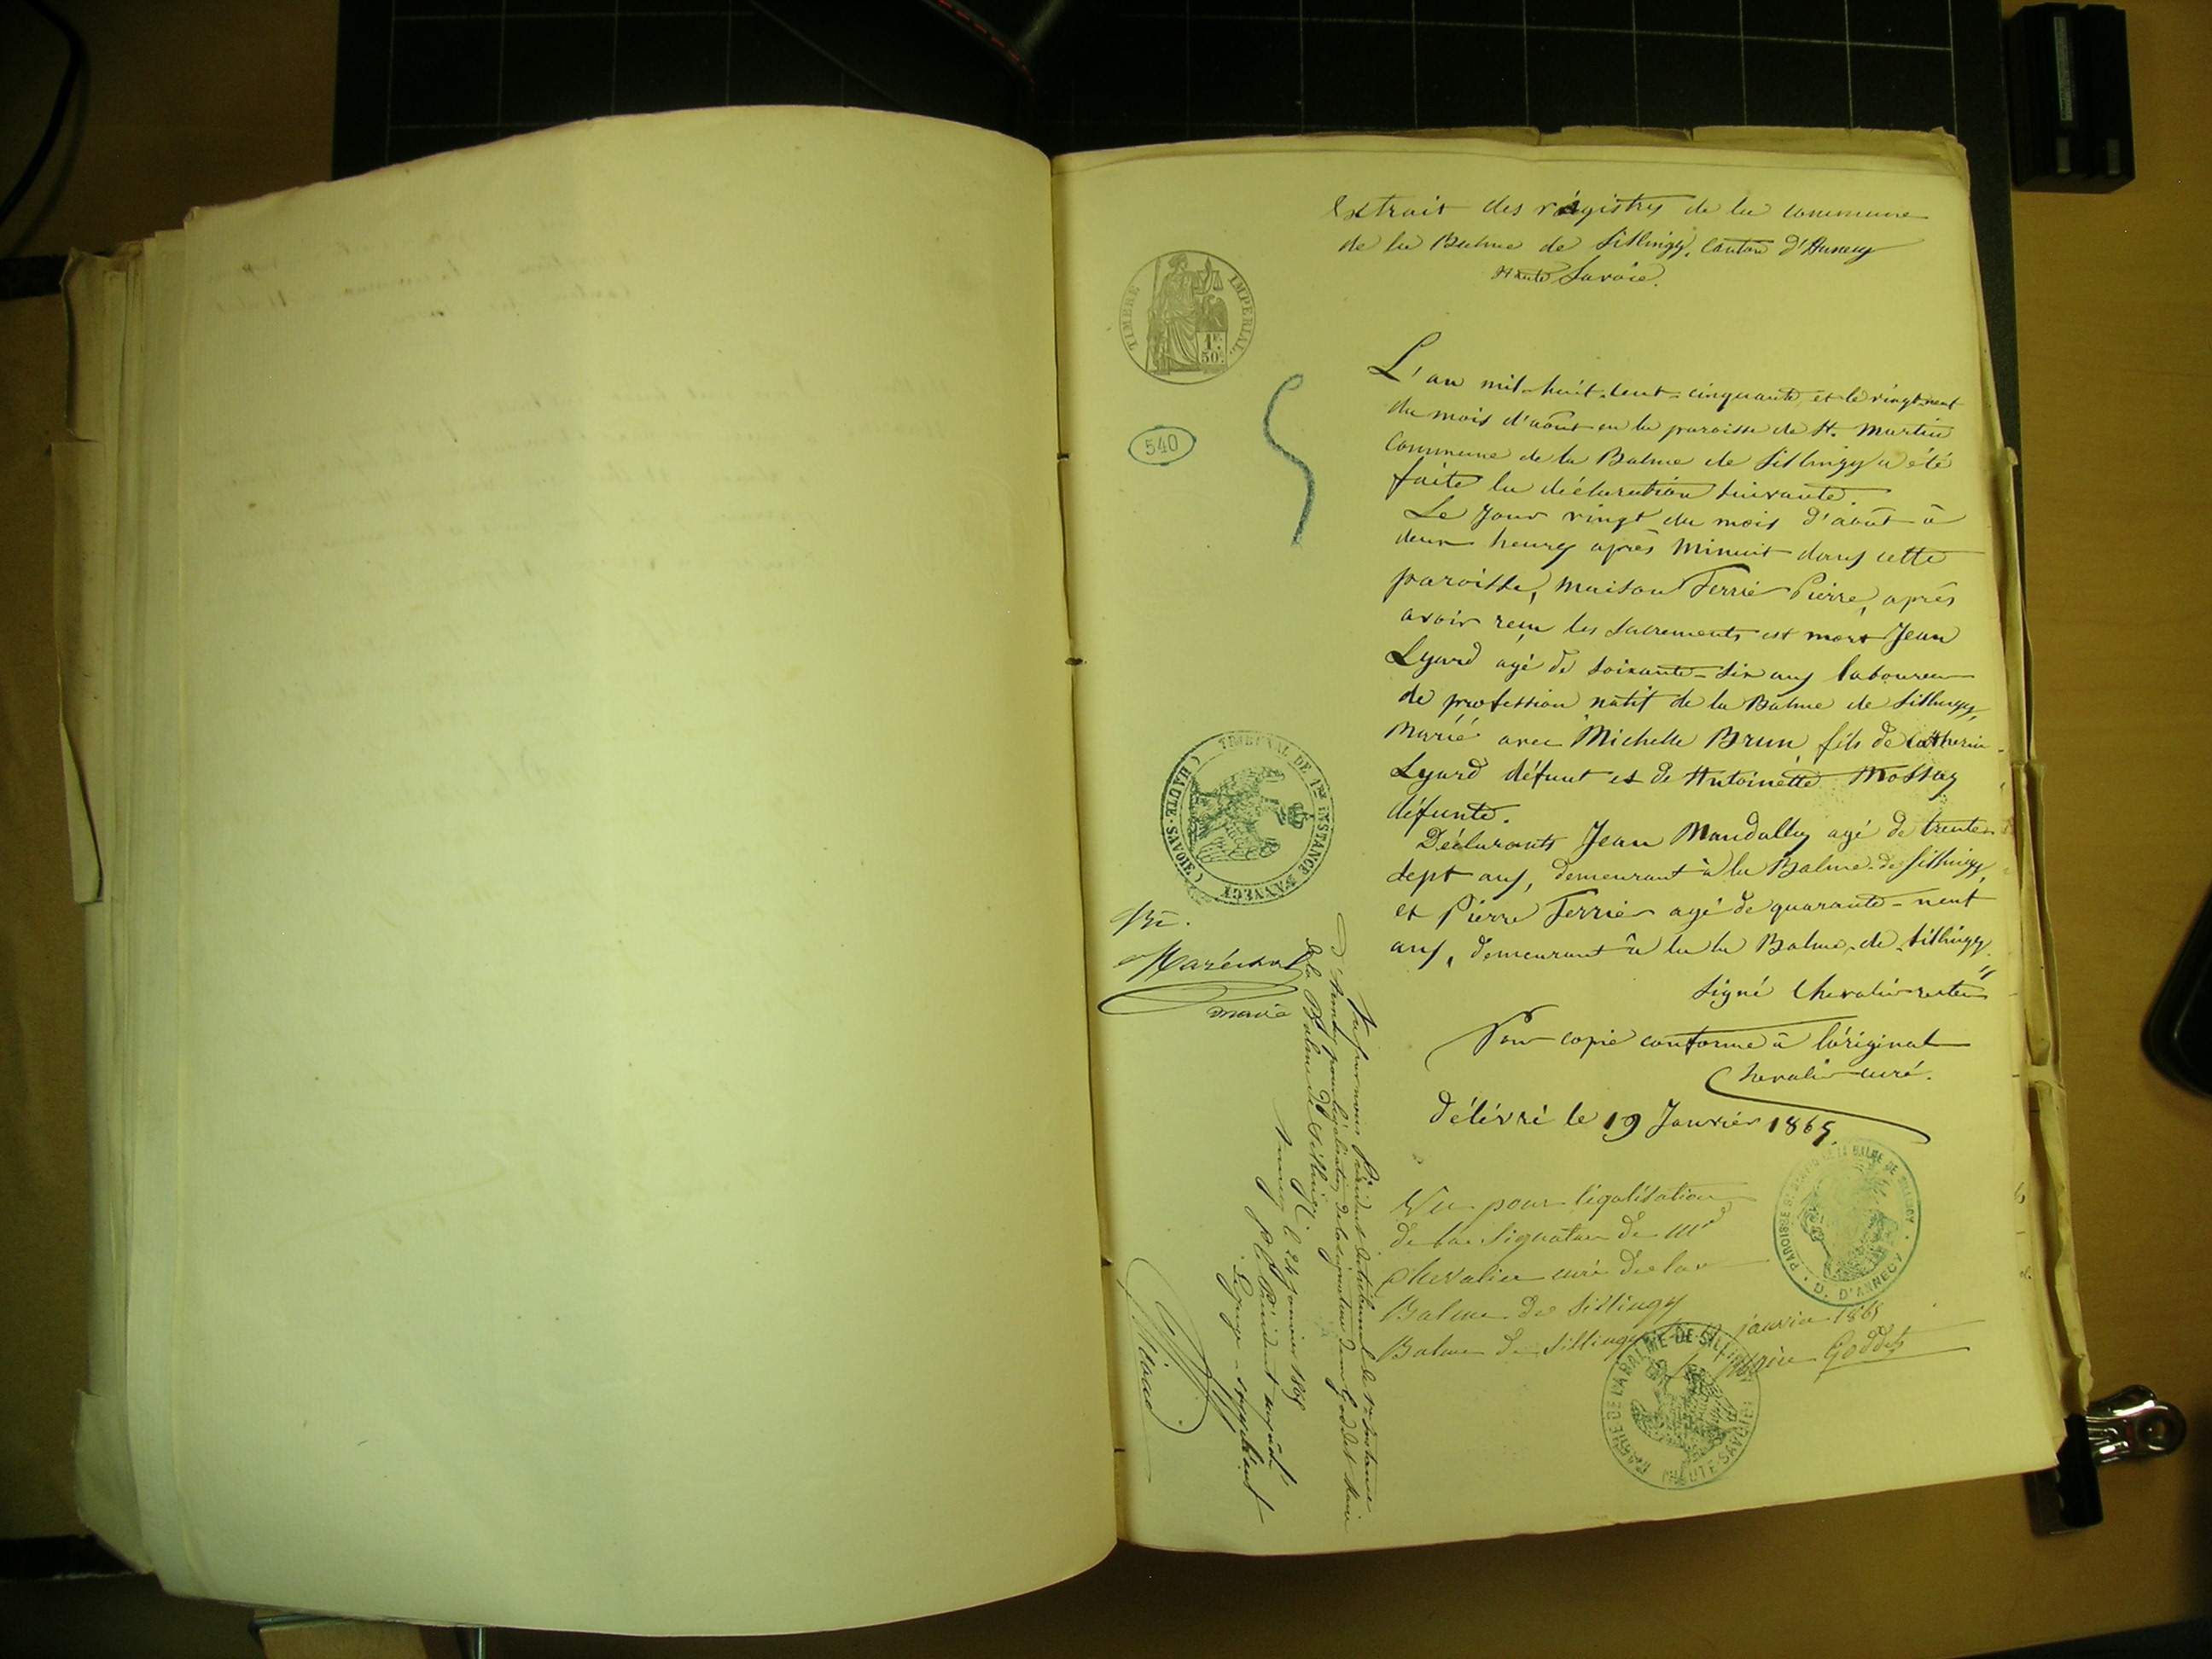 Extrait des régistres de la commune
de la Balme de Sillingy, Canton d'Annecy
Haute Savoie.
TIMBRE IMPERIAL
1F. 50c.
540
L'an mil-huit-cent-cinquante et le vingt-neuf
du mois d'août en la paroisse de St. Martin
Commune de la Balme de Sillingy a été
faite la déclaration suivante.
Le jour vingt du mois d'août à
deux heures après minuit dans cette
paroisse, maison Ferrier Pierre, après
avoir reçu les sacrements est mort Jean
Lyard agé de soixante-six ans laboureur
de profession natif de la Balme de Sillingy,
Marié avec Michelle Brun, fils de Catherin
Lyard défunt et de Antoinette Mossuz
défunte.
Déclarants Jean Mandallaz agé de trente
sept ans, demeurant à la Balme-de-Sillingy,
et Pierre Ferrier agé de quarante-neuf
ans, demeurant à la la Balme-de-Sillingy.
Signé Chevalier recteur
Pour copie conforme à l'original
Chevalier curé.
Délévré le 19 Janvier 1865.
PAROISSE DE LA BALME DE SILLINGY
D. D'ANNECY
Vu pour légalisation
de la signature de Mr
Chevalier curé de la
Balme de Sillingy
Balme de Sillingy janvier 1865
Goddet
MAIRIE DE LA BALME-DE-SILLINGY
HAUTE-SAVOIE
TRIBUNAL DE 1RE INSTANCE D'ANNECY
(HAUTE-SAVOIE)
Maréchal
Vu par nous Président du tribunal de 1re Instance
d'Annecy pour légalisation de la signature de Mr Goddet Maire
de la Balme de Sillingy
Annecy le 24 janvier 1865
Pr le Président empêché
Le juge suppléant